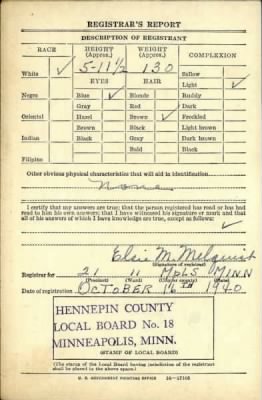 REGISTRAR'S REPORT
DESCRIPTION OF REGISTRANT
RACE HEIGHT (Approx.) WEIGHT (Approx.) COMPLEXION
White ✓ 5-11 1/2 130 Sallow
EYES HAIR Light ✓
Negro Blue ✓ Blonde Ruddy
Gray Red Dark
Oriental Hazel Brown ✓ Freckled
Brown Black Light brown
Indian Black Gray Dark brown
Bald Black
Filipino
Other obvious physical characteristics that will aid in identification
None
I certify that my answers are true; that the person registered has read or has had
read to him his own answers; that I have witnessed his signature or mark and that
all of his answers of which I have knowledge are true, except as follows:
Elsie M. Melquist
(Signature of registrar)
Registrar for 21 11 MPLS MINN
(Precinct) (Ward) (City or county) (State)
Date of registration OCTOBER 16TH 1940
HENNEPIN COUNTY
LOCAL BOARD No. 18
MINNEAPOLIS, MINN.
(STAMP OF LOCAL BOARD)
(The stamp of the Local Board having jurisdiction of the registrant
shall be placed in the above space.)
U. S. GOVERNMENT PRINTING OFFICE 16-17105